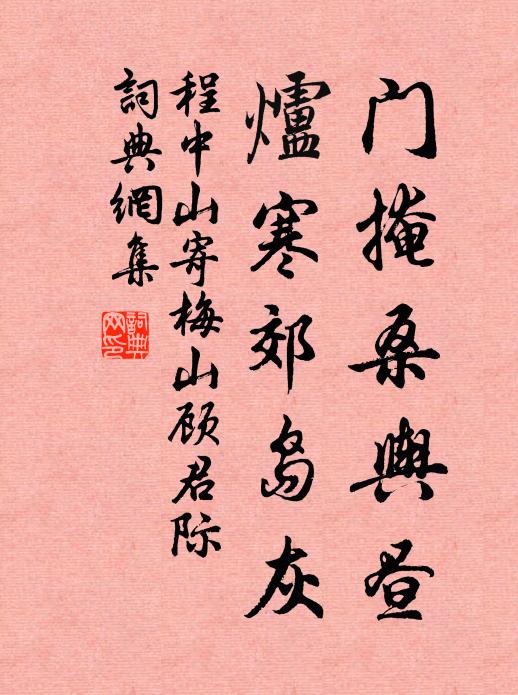 门掩桑舆昼
爐寒郊岛灰
程中山寄梅山顾君际
詞典網集
詞典網印